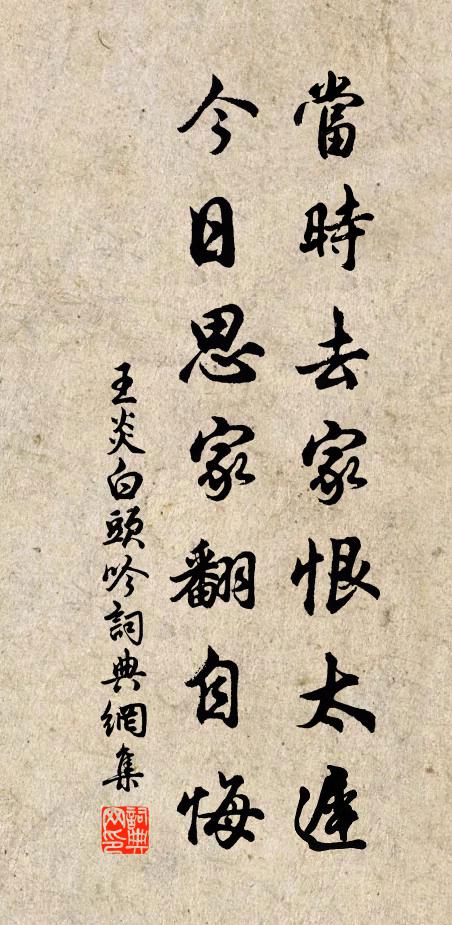 當時去家恨太遲
今日思家翻自悔
王炎白頭吟詞典網集
詞典網印